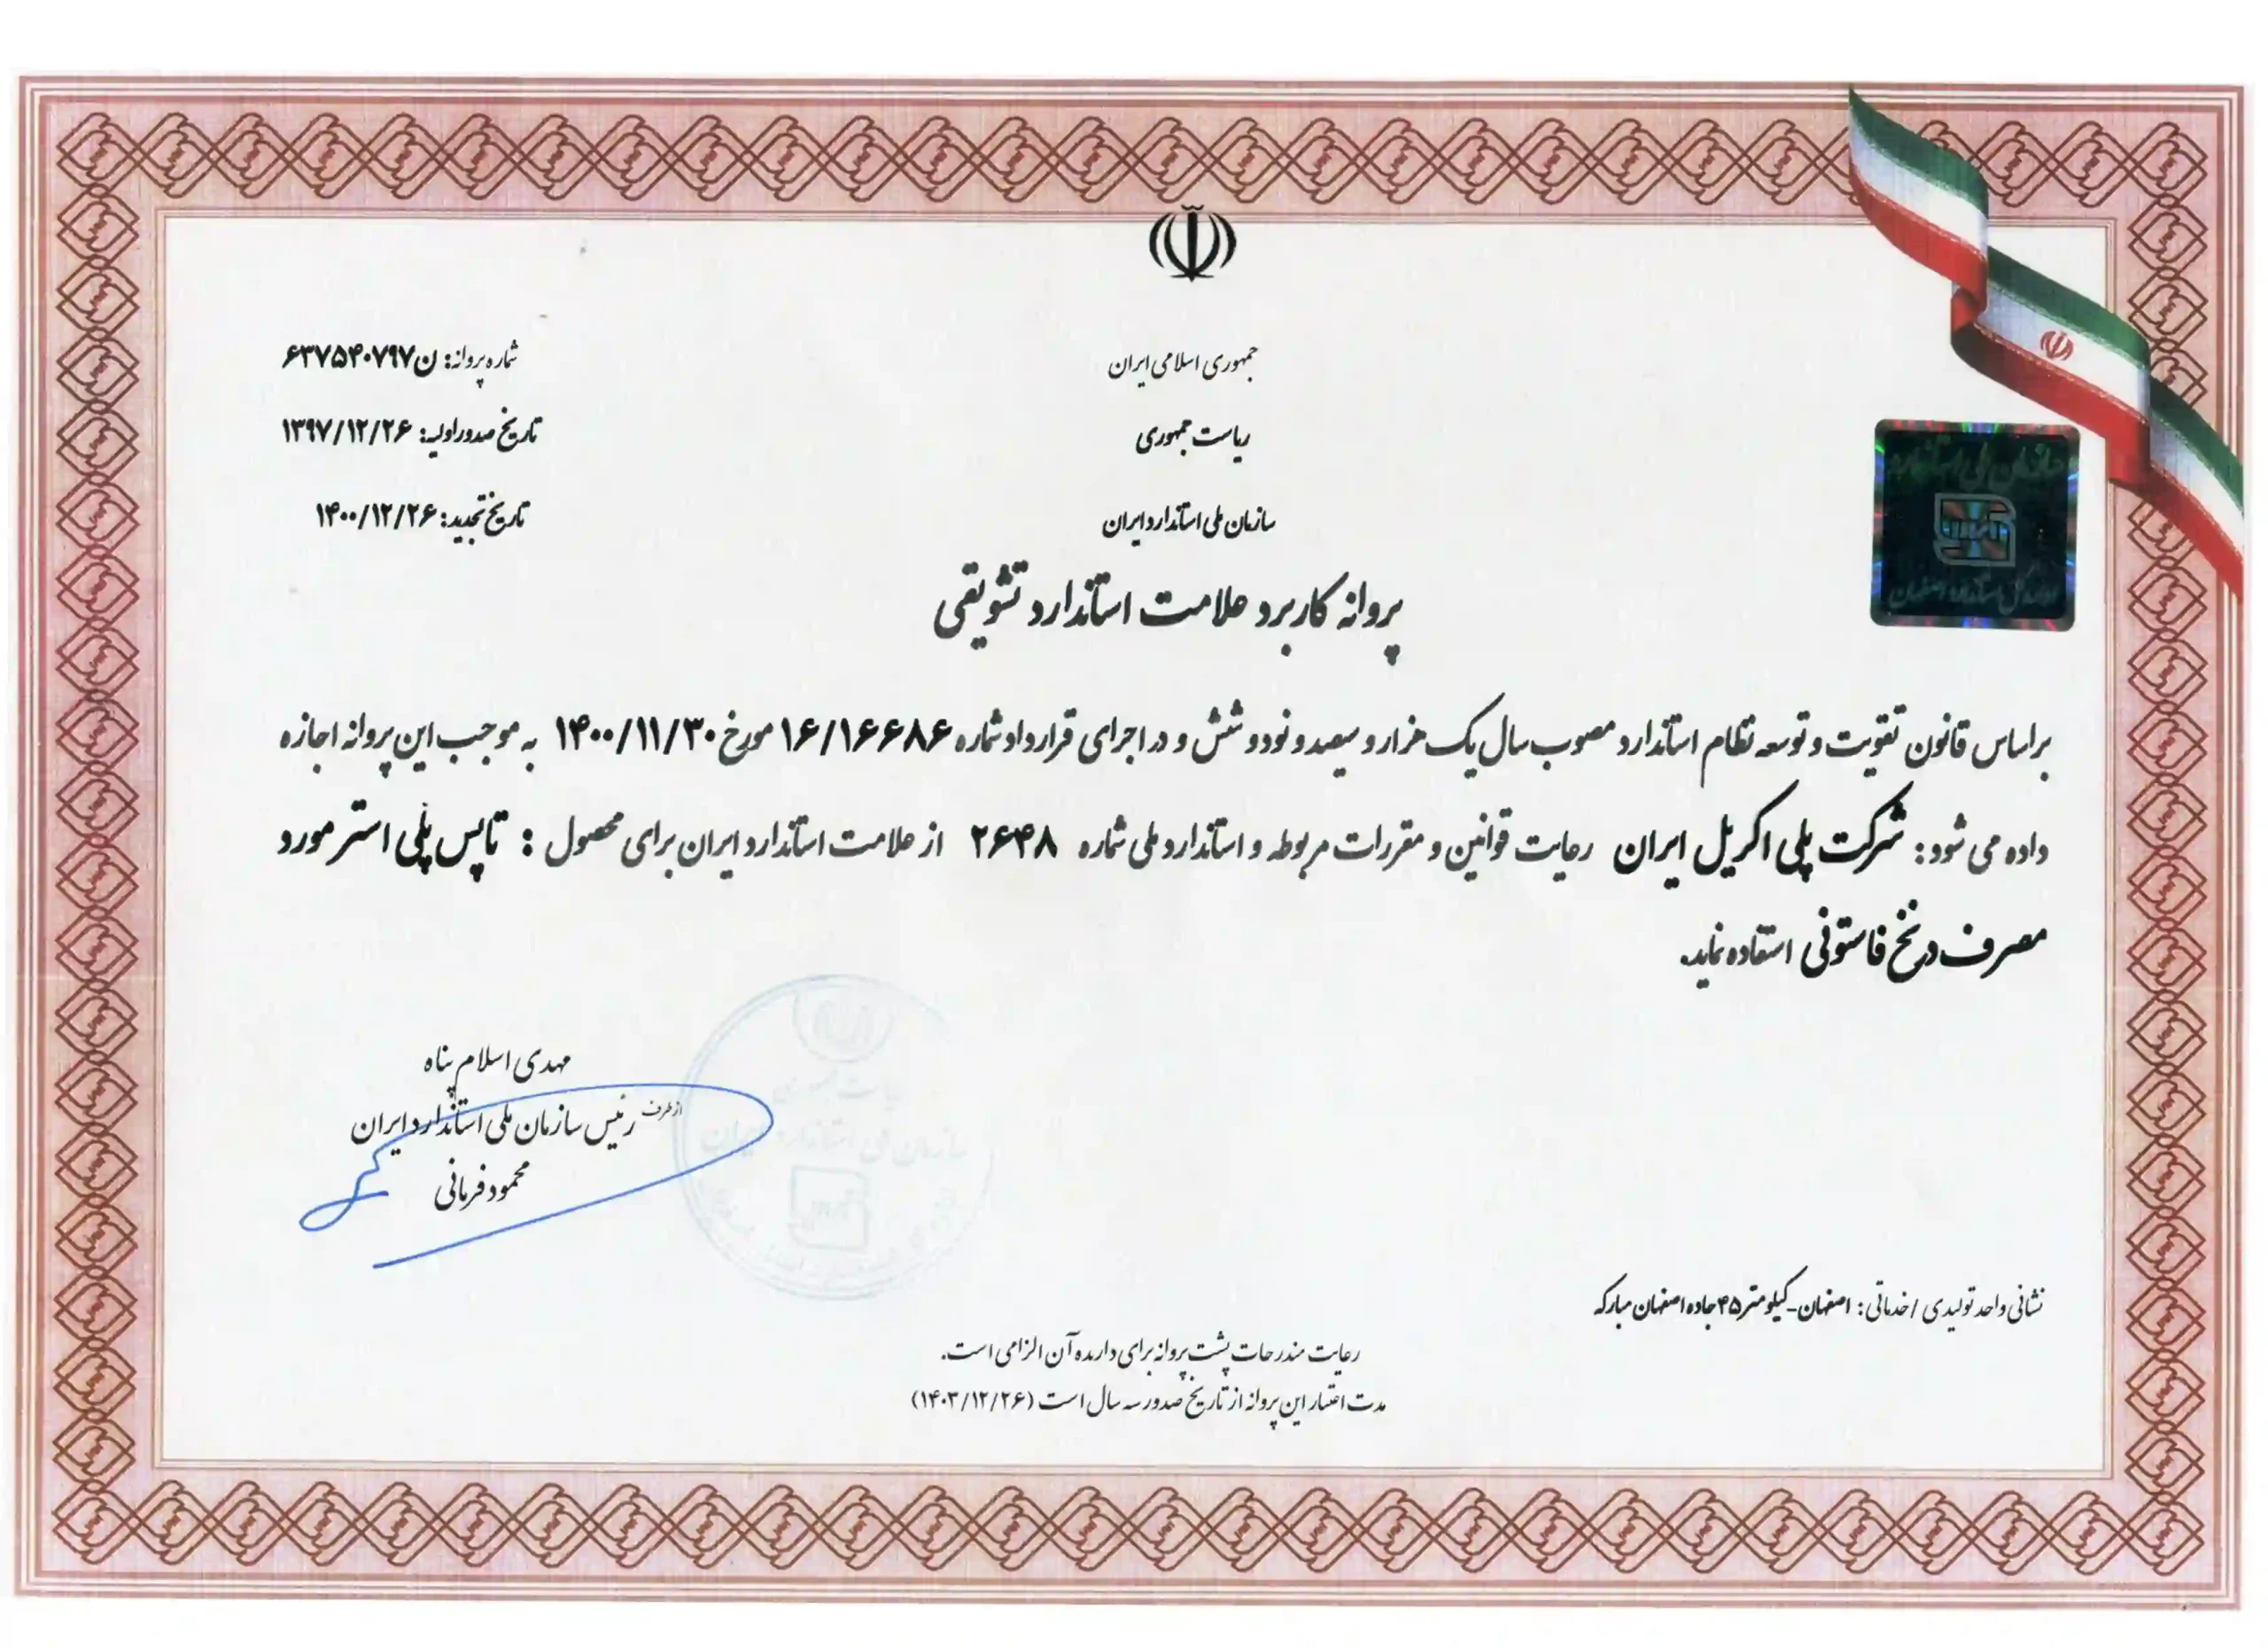 جمهوری اسلامی ایران
ریاست جمهوری
سازمان ملی استاندارد ایران
شماره پروانه: ن۶۳۷۵۴۰۷۹۷
تاریخ صدور اولیه: ۱۳۹۷/۱۲/۲۶
تاریخ تجدید: ۱۴۰۰/۱۲/۲۶
سازمان ملی استاندارد
اداره کل استاندارد اصفهان
پروانه کاربرد علامت استاندارد تشویقی
براساس قانون تقویت و توسعه نظام استاندارد مصوب سال یک هزار و سیصد و نود و شش و در اجرای قرارداد شماره ۱۶/۱۶۶۸۶ مورخ ۱۴۰۰/۱۱/۳۰ به موجب این پروانه اجازه
داده می شود: شرکت پلی اکریل ایران رعایت قوانین و مقررات مربوطه و استاندارد ملی شماره ۲۶۴۸ از علامت استاندارد ایران برای محصول : تاپس پلی استر مورد
مصرف در نخ فاستونی استفاده نماید.
مهدی اسلام پناه
از طرف رئیس سازمان ملی استاندارد ایران
محمود فرمانی
سازمان ملی استاندارد ایران
نشانی واحد تولیدی / خدماتی: اصفهان-کیلومتر ۴۵ جاده اصفهان مبارکه
رعایت مندرجات پشت پروانه برای دارنده آن الزامی است.
مدت اعتبار این پروانه از تاریخ صدور سه سال است (۱۴۰۳/۱۲/۲۶)